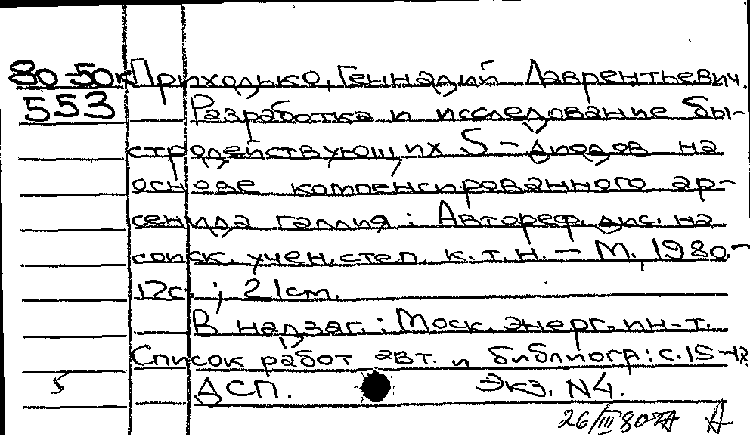 80-50к Приходько, Геннадий Лаврентьевич.
553 Разработка и исследование бы-
стродействующих S-диодов на
основе компенсированного ар-
сенида галлия: Автореф. дис. на
соиск. учен. степ. к.т.н. – М., 1980.–
12с.; 21см.
В надзаг.: Моск. энерг. ин-т.
Список работ авт. и библиогр: с. 15-18
5 ДСП. Экз. N4.
26/III 80